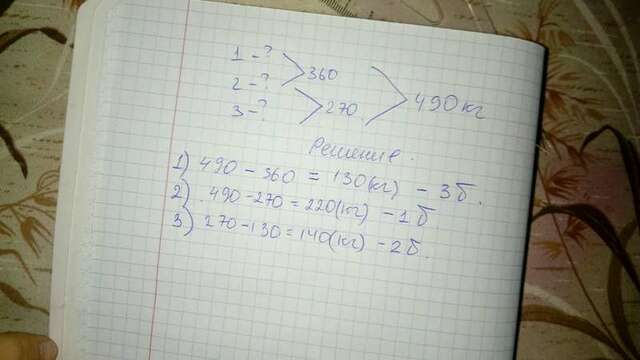 1 - ? > 360
2 - ?
3 - ? > 270 > 490 кг
Решение.
1) 490 - 360 = 130(кг) - 3 б.
2) 490 - 270 = 220(кг) - 1 б
3) 270 - 130 = 140(кг) - 2 б.